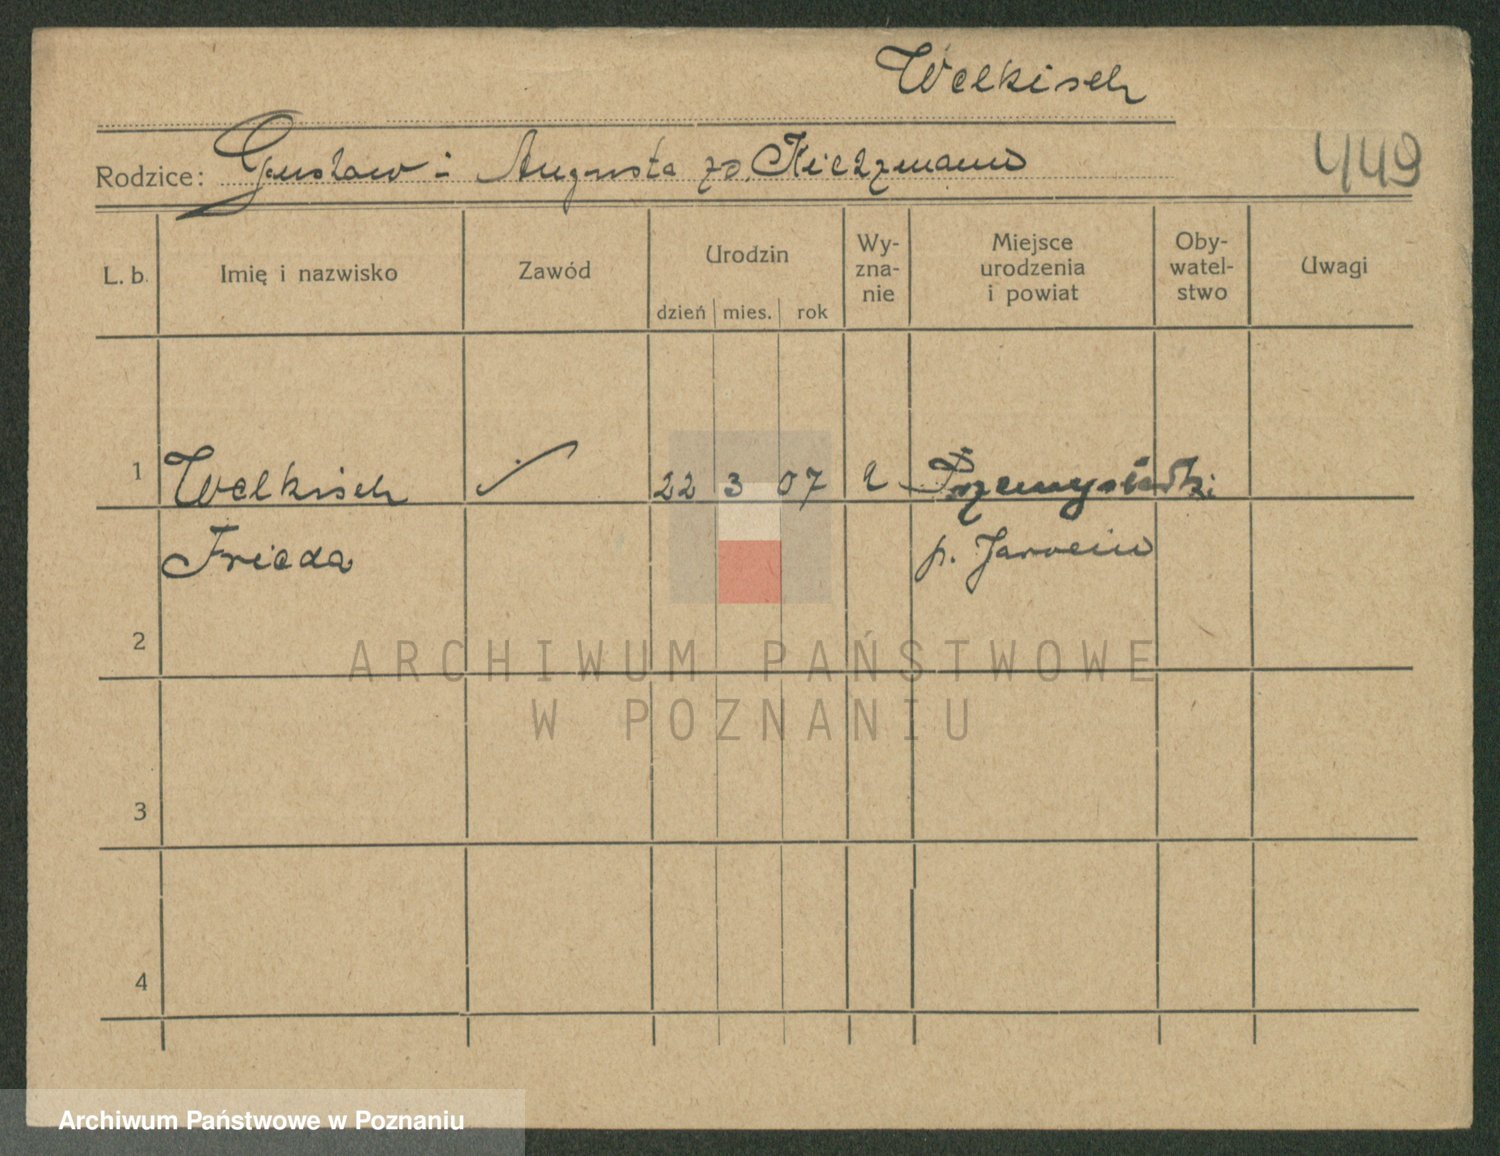 Welkisch
Rodzice: Gustaw i Augusta zd. Kietzmann
449
L. b. Imię i nazwisko Zawód Urodzin dzień mies. rok Wy-zna-nie Miejsce urodzenia i powiat Oby-watel-stwo Uwagi
1 Welkisch 22 3 07 Przemysłdki
Frieda p. Jarocin
2
ARCHIWUM PAŃSTWOWE
W POZNANIU
3
4
Archiwum Państwowe w Poznaniu